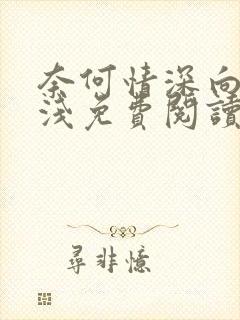 奈何情深向
淺免費閱讀
尋非憶